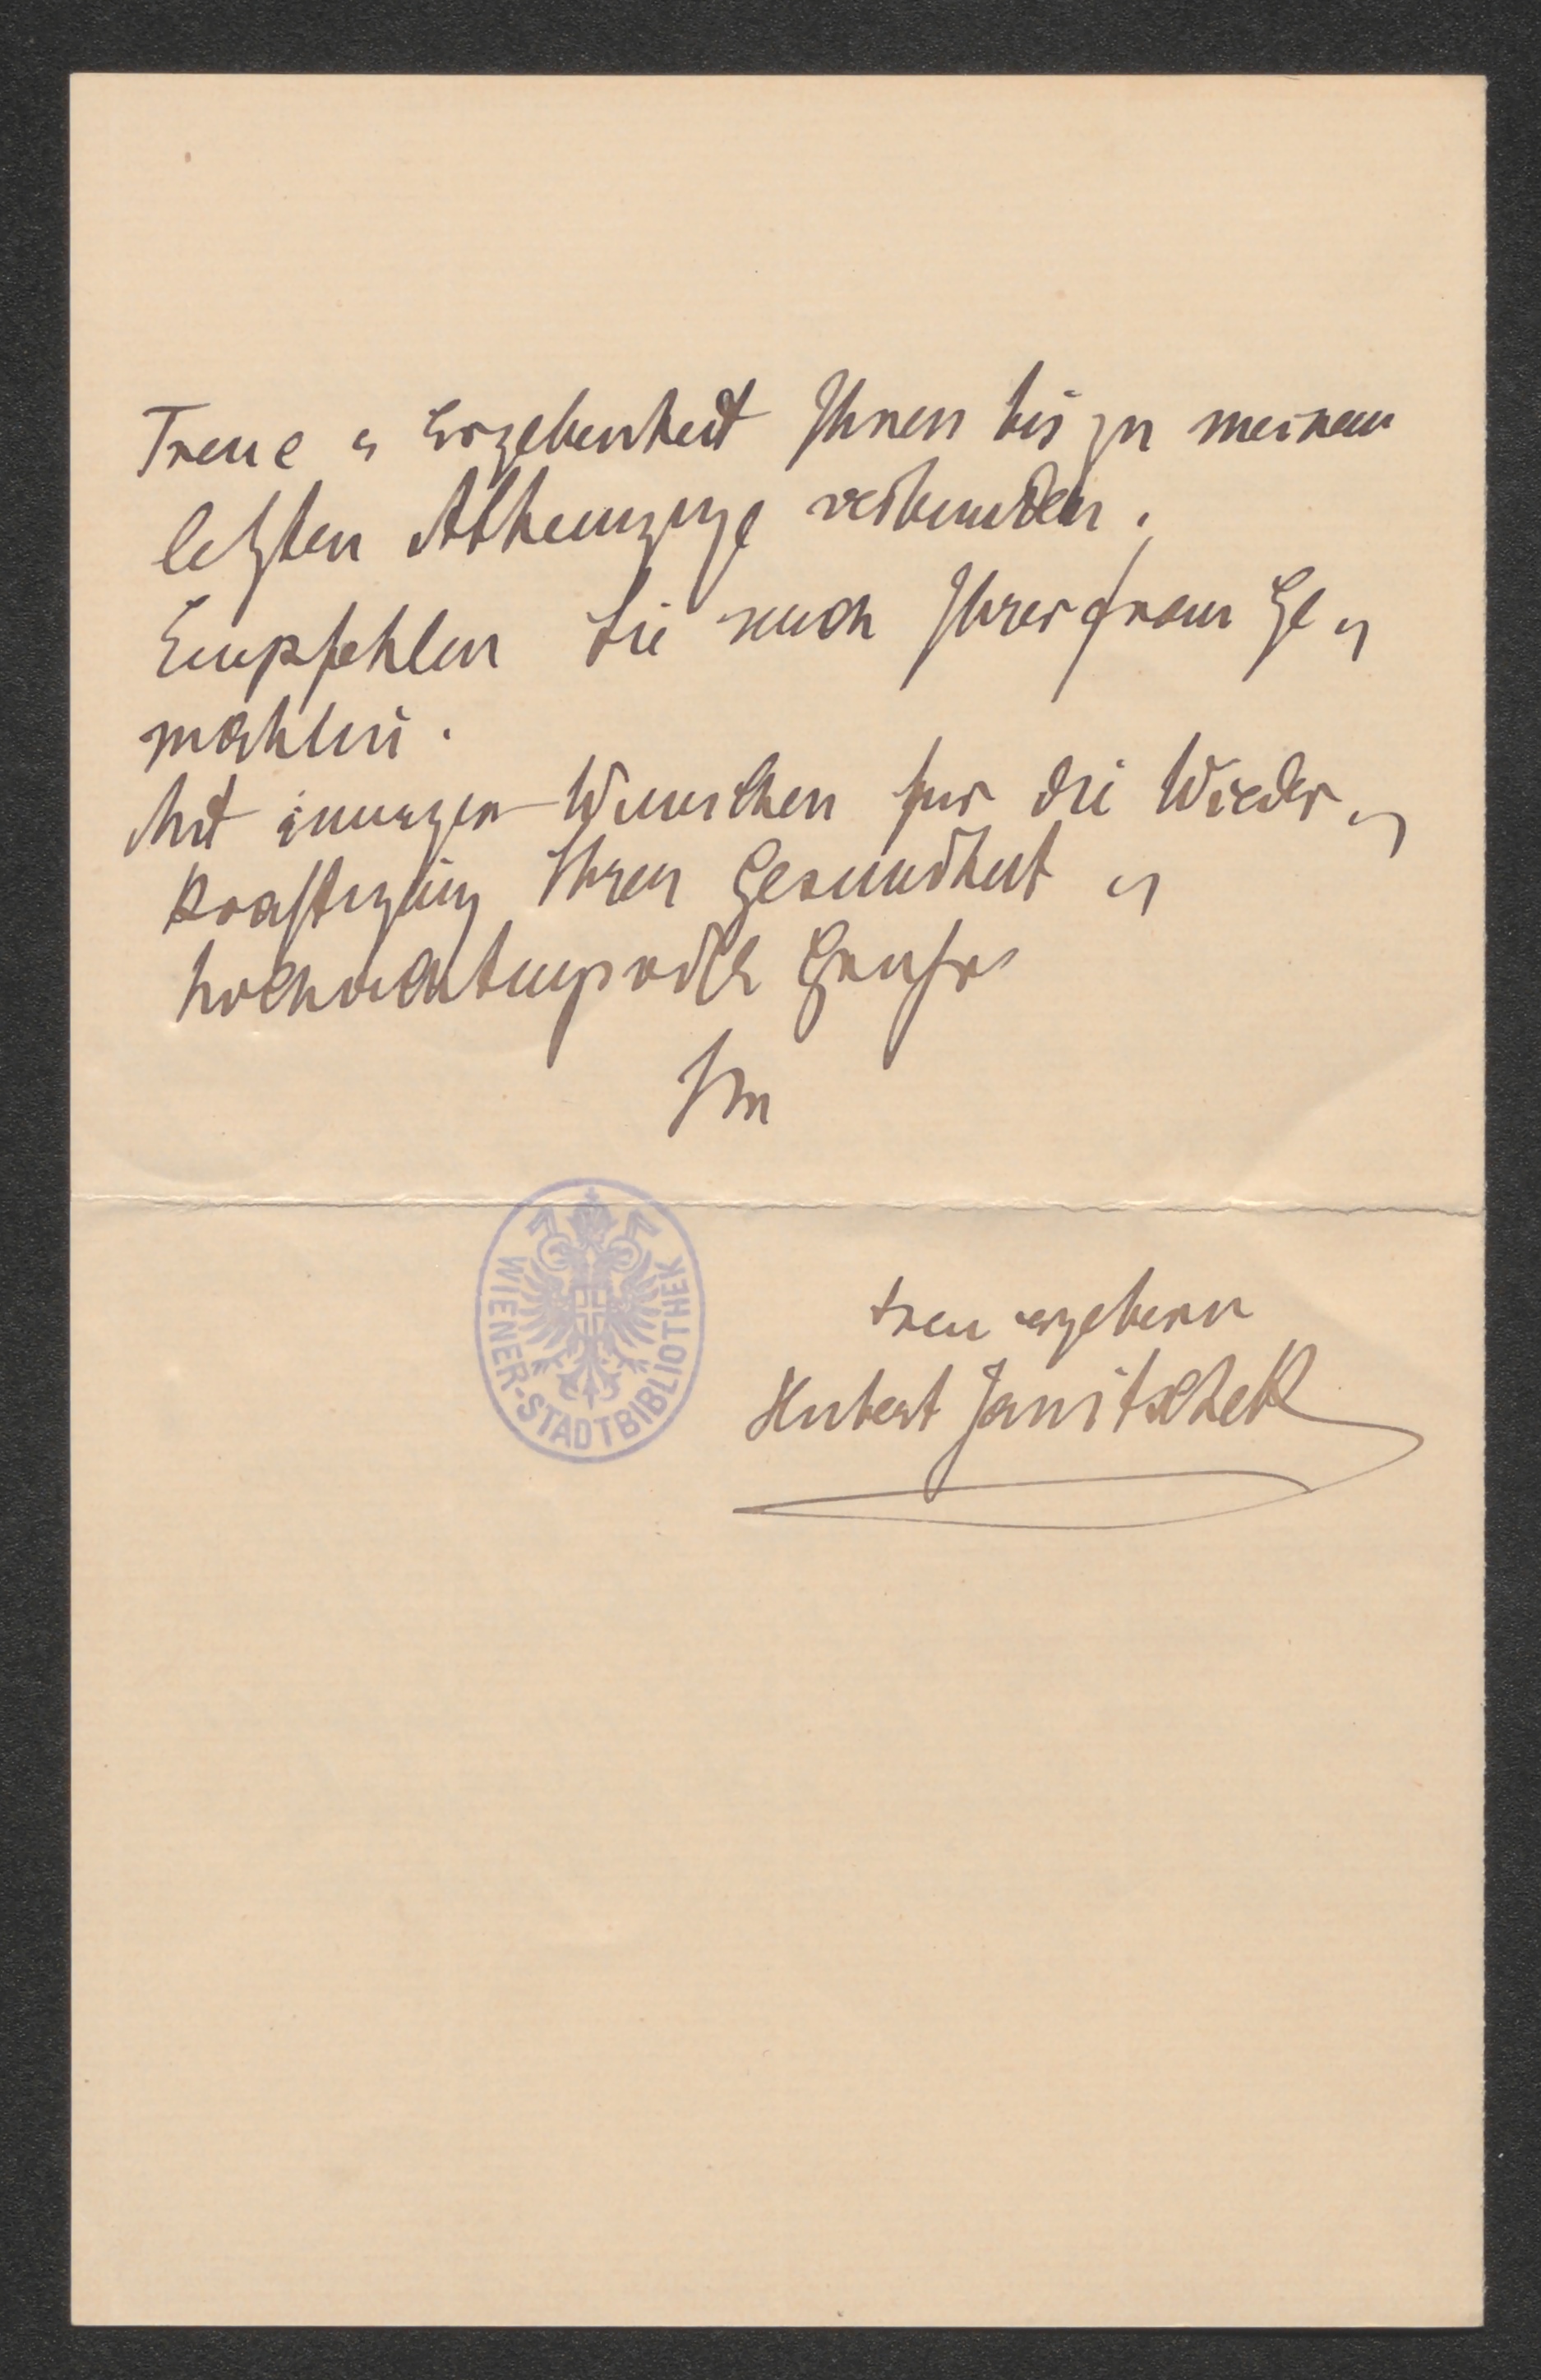 Treue u Ergebenheit Ihnen bis zu meinem
letzten Athemzuge verbunden.
Empfehlen Sie mich Ihrer Frau Ge-
mahlin.
Mit innigen Wünschen für die Wieder-
kräftigung Ihrer Gesundheit u
hochachtungsvollen Gruße
Ihr
treu ergebener
Hubert Janitschek
WIENER-STADTBIBLIOTHEK